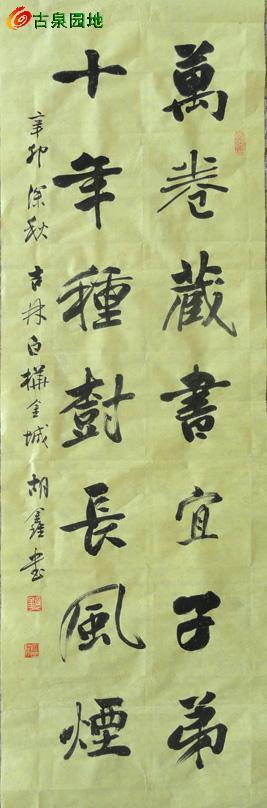 古泉园地
萬卷藏書宜子弟
十年種樹長風煙
辛卯深秋 吉林白樺金城 胡鑫书